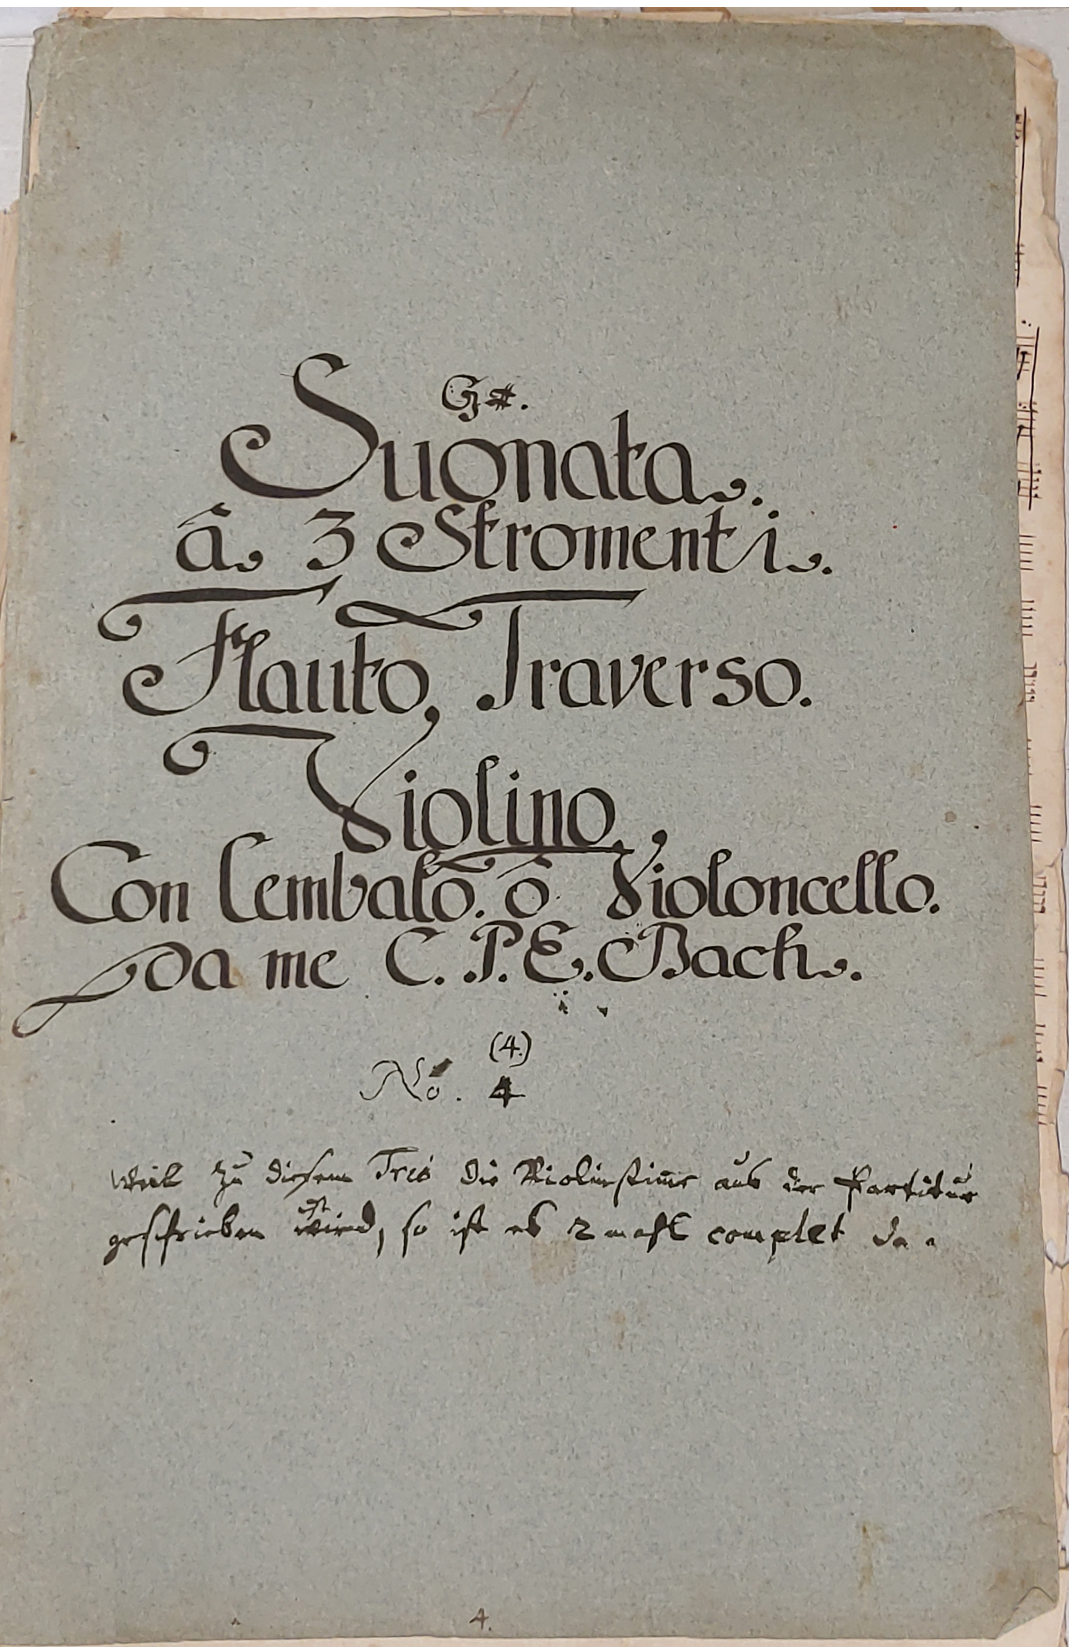 4
G#.
Suonata.
â. 3 Stromenti.
Flauto, Traverso.
Violino.
Con Cembalo. ô Violoncello.
da me C. P. E. Bach.
(4.)
No. 4
Weil zu diesem Trio die Violinstim̅e aus der Partitur
ist
geschrieben wird, so ist es 2 mahl complet da.
4.